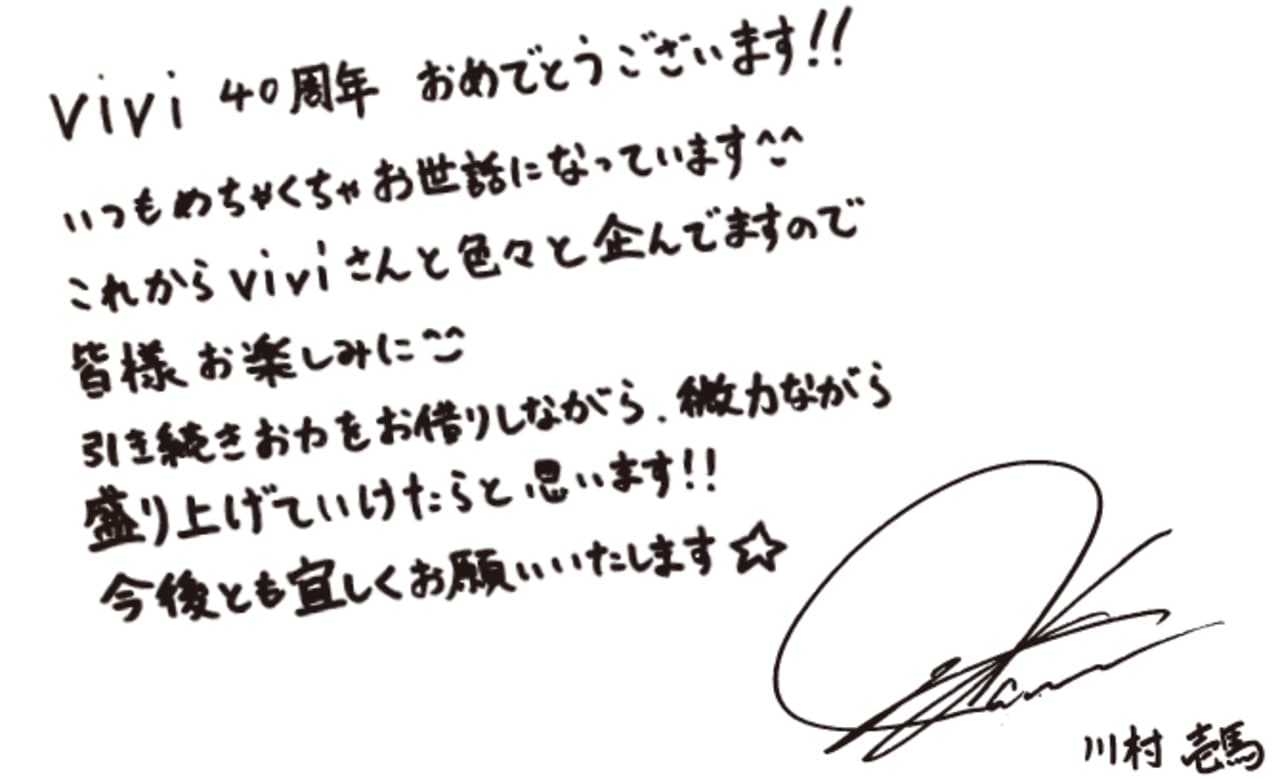 vivi 40周年 おめでとうございます!!
いつもめちゃくちゃお世話になっています^^
これからviviさんと色々と企んでますので
皆様お楽しみに^^
引き続きお力をお借りしながら、微力ながら
盛り上げていけたらと思います!!
今後とも宜しくお願いいたします☆
川村 壱馬